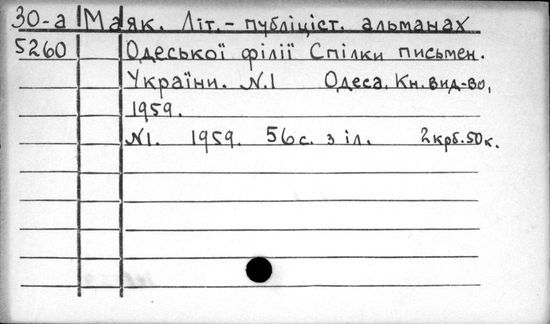 30-а Маяк. Літ.- публіціст. альманах
5260 Одеської філії Спілки письмен.
України. N.1 Одеса. Кн. вид-во,
1959.
N1. 1959. 56 с. з іл. 2 крб. 50 к.